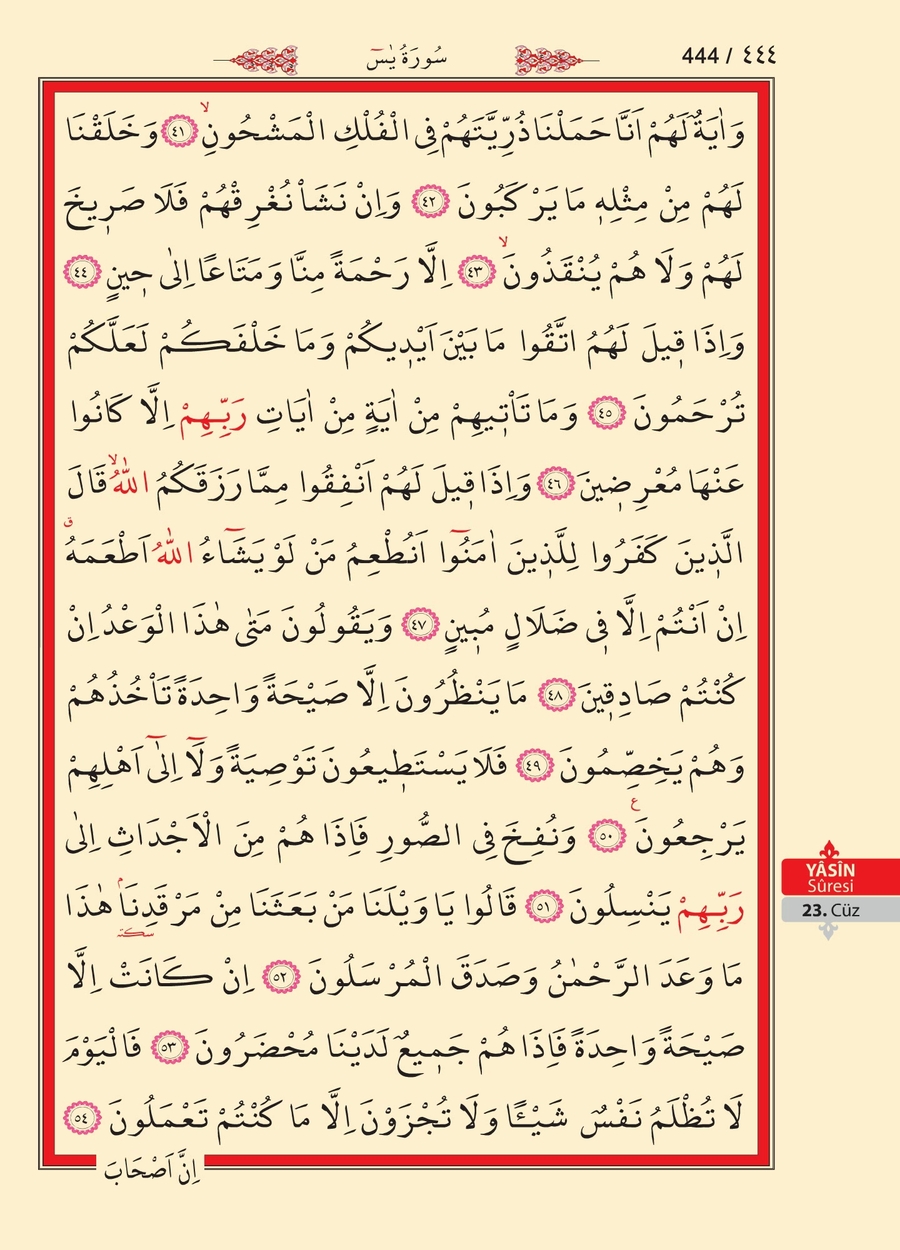 444 / ٤٤٤
سُورَةُ يٰسٓ
وَاٰيَةٌ لَهُمْ اَنَّا حَمَلْنَا ذُرِّيَّتَهُمْ فِي الْفُلْكِ الْمَشْحُونِۙ ﴿٤١﴾ وَخَلَقْنَا
لَهُمْ مِنْ مِثْلِه۪ مَا يَرْكَبُونَ ﴿٤٢﴾ وَاِنْ نَشَأْ نُغْرِقْهُمْ فَلَا صَر۪يخَ
لَهُمْ وَلَا هُمْ يُنْقَذُونَۙ ﴿٤٣﴾ اِلَّا رَحْمَةً مِنَّا وَمَتَاعًا اِلٰى ح۪ينٍ ﴿٤٤﴾
وَاِذَا ق۪يلَ لَهُمُ اتَّقُوا مَا بَيْنَ اَيْد۪يكُمْ وَمَا خَلْفَكُمْ لَعَلَّكُمْ
تُرْحَمُونَ ﴿٤٥﴾ وَمَا تَأْت۪يهِمْ مِنْ اٰيَةٍ مِنْ اٰيَاتِ رَبِّهِمْ اِلَّا كَانُوا
عَنْهَا مُعْرِض۪ينَ ﴿٤٦﴾ وَاِذَا ق۪يلَ لَهُمْ اَنْفِقُوا مِمَّا رَزَقَكُمُ اللّٰهُۙ قَالَ
الَّذ۪ينَ كَفَرُوا لِلَّذ۪ينَ اٰمَنُٓوا اَنُطْعِمُ مَنْ لَوْ يَشَٓاءُ اللّٰهُ اَطْعَمَهُۗ
اِنْ اَنْتُمْ اِلَّا ف۪ي ضَلَالٍ مُب۪ينٍ ﴿٤٧﴾ وَيَقُولُونَ مَتٰى هٰذَا الْوَعْدُ اِنْ
كُنْتُمْ صَادِق۪ينَ ﴿٤٨﴾ مَا يَنْظُرُونَ اِلَّا صَيْحَةً وَاحِدَةً تَأْخُذُهُمْ
وَهُمْ يَخِصِّمُونَ ﴿٤٩﴾ فَلَا يَسْتَط۪يعُونَ تَوْصِيَةً وَلَٓا اِلٰٓى اَهْلِهِمْ
يَرْجِعُونَ۟ ﴿٥٠﴾ وَنُفِخَ فِي الصُّورِ فَاِذَا هُمْ مِنَ الْاَجْدَاثِ اِلٰى
رَبِّهِمْ يَنْسِلُونَ ﴿٥١﴾ قَالُوا يَا وَيْلَنَا مَنْ بَعَثَنَا مِنْ مَرْقَدِنَاۢ هٰذَا
سكته
مَا وَعَدَ الرَّحْمٰنُ وَصَدَقَ الْمُرْسَلُونَ ﴿٥٢﴾ اِنْ كَانَتْ اِلَّا
صَيْحَةً وَاحِدَةً فَاِذَا هُمْ جَم۪يعٌ لَدَيْنَا مُحْضَرُونَ ﴿٥٣﴾ فَالْيَوْمَ
لَا تُظْلَمُ نَفْسٌ شَيْـًٔا وَلَا تُجْزَوْنَ اِلَّا مَا كُنْتُمْ تَعْمَلُونَ ﴿٥٤﴾
اِنَّ اَصْحَابَ
YÂSÎN
Sûresi
23. Cüz